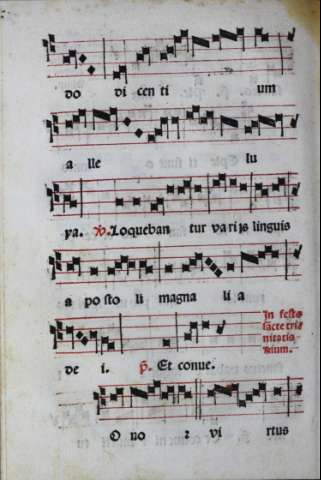 do di cen ti um
a lle lu
ya. ℣. Loqueban tur varijs linguis
a posto li magna li a
de i. p̄. Et conue.
In festo
sācte tri
nitatis
O no ꝛ vi rtus